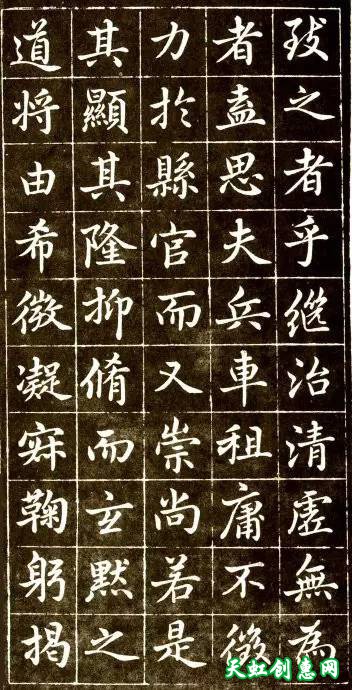 致之者乎继治清虚無為
者盍思夫兵車租庸不徵
力扵縣官而又崇尚若是
其顯其隆抑脩而玄默之
道将由希微凝寂鞠躬揭
天虹创意网